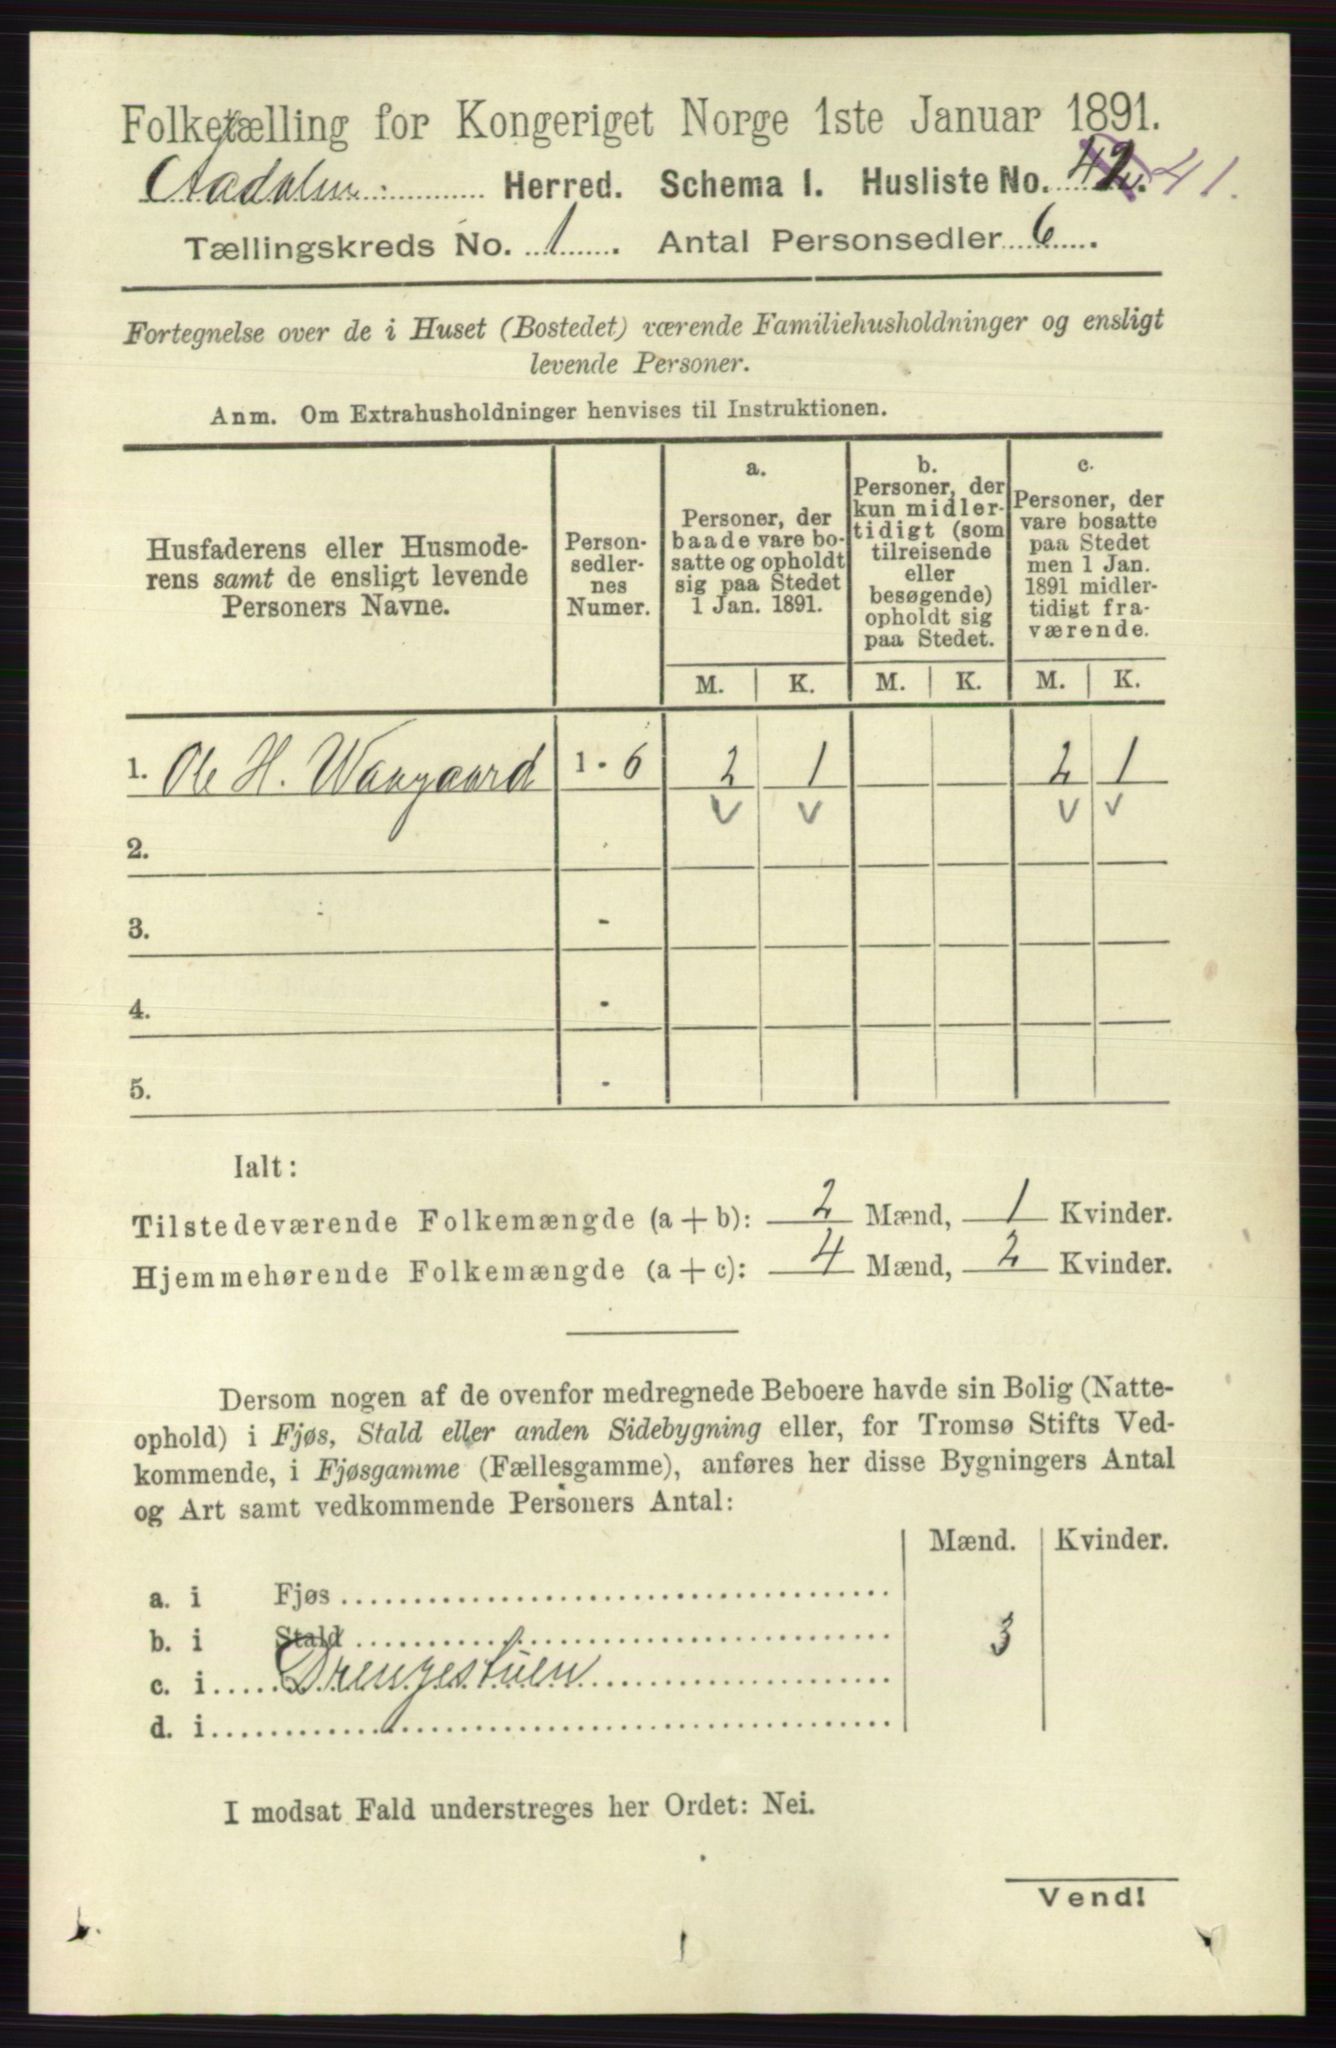 Folketælling for Kongeriget Norge 1ste Januar 1891.
Aadalen Herred. Schema I. Husliste No. 42. 41.
Tællingskreds No. 1. Antal Personsedler 6.
Fortegnelse over de i Huset (Bostedet) værende Familiehusholdninger og ensligt
levende Personer.
Anm. Om Extrahusholdninger henvises til Instruktionen.
Husfaderens eller Husmode-
rens samt de ensligt levende
Personers Navne.
Person-
sedler-
nes
Numer.
a.
Personer, der
baade vare bo-
satte og opholdt
sig paa Stedet
1 Jan. 1891.
b.
Personer, der
kun midler-
tidigt (som
tilreisende
eller
besøgende)
opholdt sig
paa Stedet.
c.
Personer, der
vare bosatte
paa Stedet
men 1 Jan.
1891 midler-
tidigt fra-
værende.
M. K. M. K. M. K.
1. Ole H. Waagaard 1 - 6 2 1 2 1
2.
3. -
4. -
5. -
Ialt:
Tilstedeværende Folkemængde (a + b): 2 Mænd, 1 Kvinder.
Hjemmehørende Folkemængde (a + c): 4 Mænd, 2 Kvinder.
Dersom nogen af de ovenfor medregnede Beboere havde sin Bolig (Natte-
ophold) i Fjøs, Stald eller anden Sidebygning eller, for Tromsø Stifts Ved-
kommende, i Fjøsgamme (Fællesgamme), anføres her disse Bygningers Antal
og Art samt vedkommende Personers Antal:
Mænd. Kvinder.
a. i Fjøs
b. i Stald 3
c. i Drengestuen
d. i
I modsat Fald understreges her Ordet: Nei.
Vend!
1